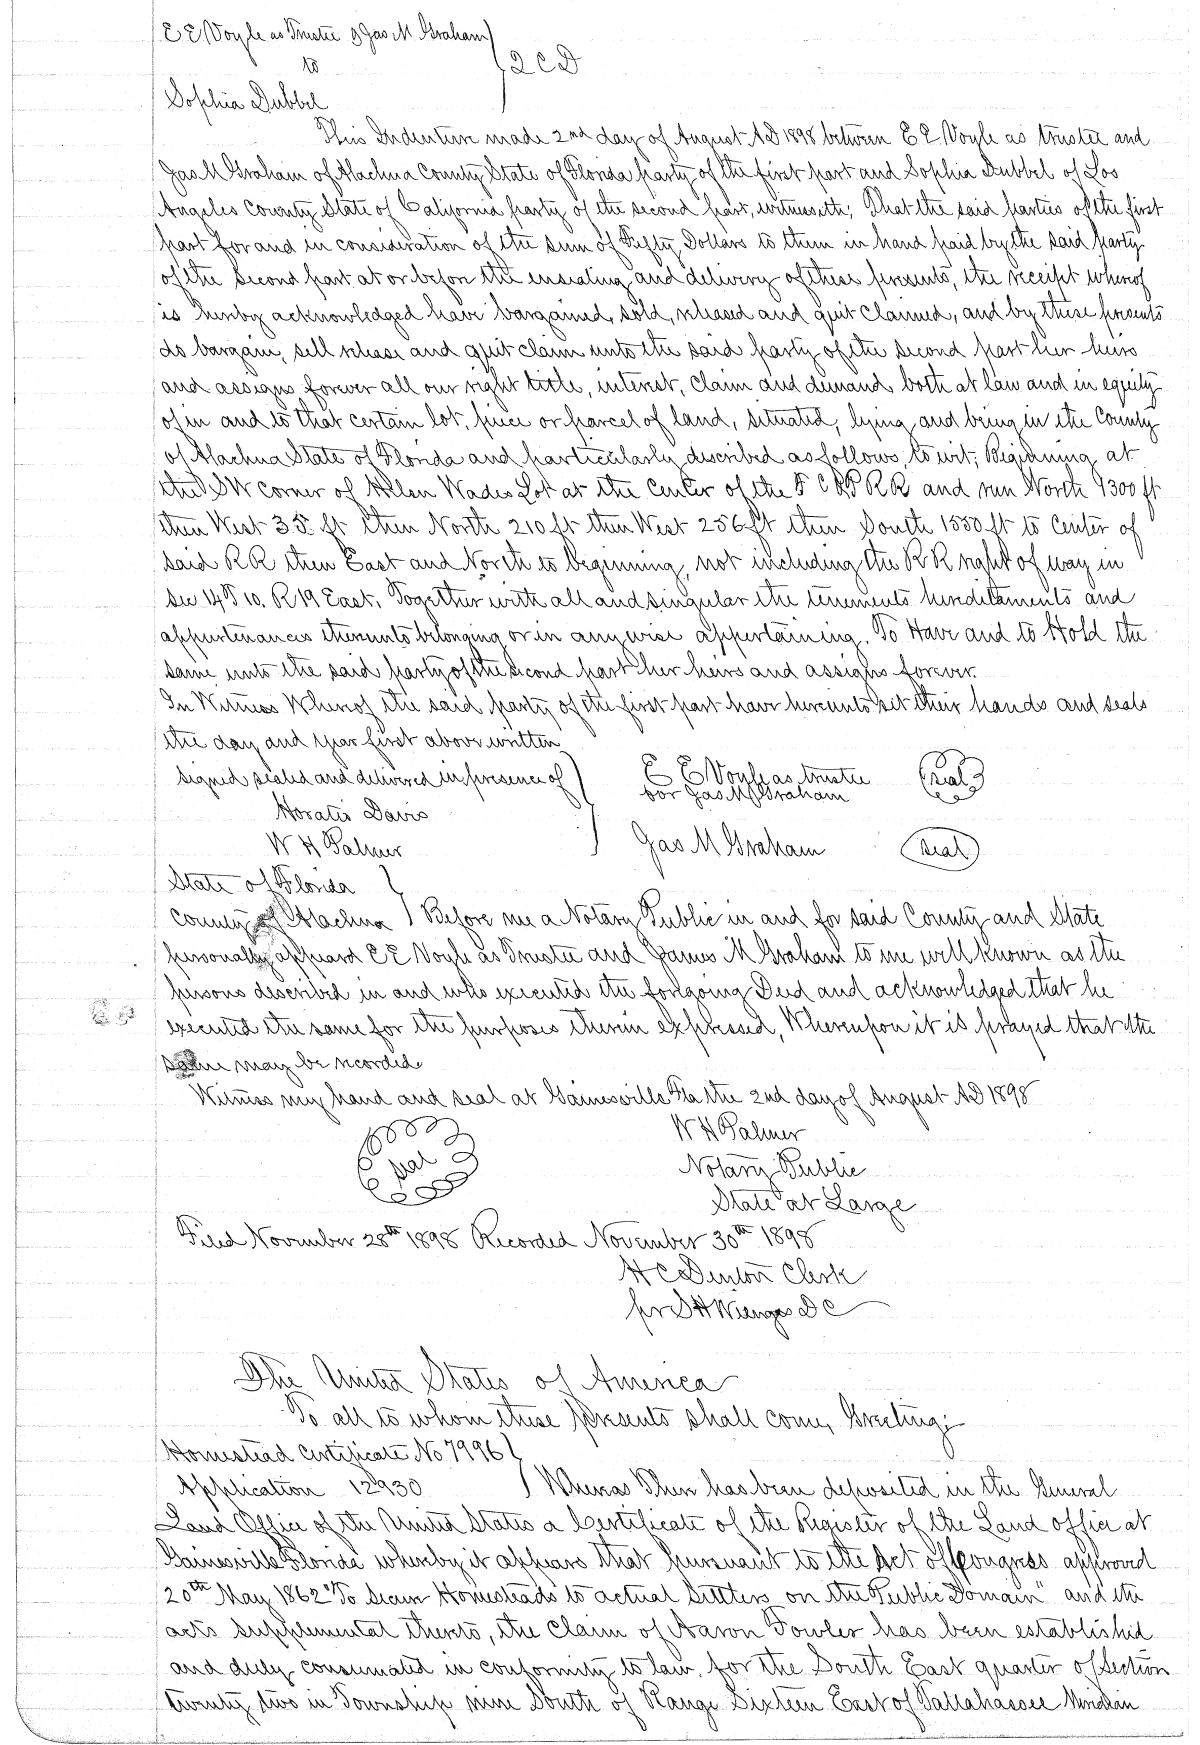 E E Voyle as Trustee & Jas M Graham
to
2 C D
Sophia Dubbel
This Indenture made 2nd day of August A D 1898 between E E Voyle as trustee and
Jas M Graham of Alachua County State of Florida party of the first part and Sophia Dubbel of Los
Angeles County State of California party of the second part, witnesseth; That the said parties of the first
part for and in consideration of the sum of Fifty Dollars to them in hand paid by the said party
of the second part at or before the ensealing and delivery of these presents, the receipt whereof
is hereby acknowledged have bargained, sold, released and quit claimed, and by these presents
do bargain, sell release and quit claim unto the said party of the second part her heirs
and assigns forever all our right title, interest, claim and demand both at law and in equity
of in and to that certain lot, piece or parcel of land, situated, lying and being in the County
of Alachua State of Florida and particularly described as follows, to wit; Beginning at
the SW corner of Allen Wades Lot at the center of the F C & P R R and run North 1300 ft
then West 35 ft then North 210 ft then West 256 ft then South 1550 ft to center of
said R R then East and North to beginning, not including the R R right of way in
Sec 14 T 10. R 19 East. Together with all and singular the tenements hereditaments and
appurtenances thereunto belonging or in anywise appertaining. To Have and to Hold the
same unto the said party of the second part her heirs and assigns forever.
In Witness Whereof the said party of the first part have hereunto set their hands and seals
the day and year first above written
signed sealed and delivered in presence of
E E Voyle as trustee seal
for Jas M Graham
Horatio Davis
W H Palmer
Jas M Graham seal
State of Florida
County of Alachua Before me a Notary Public in and for said County and State
personally appeard E E Voyle as Trustee and James M Graham to me well known as the
persons described in and who executed the forgoing Deed and acknowledged that he
executed the same for the purposes therein expressed, Whereupon it is prayed that the
same may be recorded
Witness my hand and seal at Gainesville Fla the 2nd day of August A D 1898
W H Palmer
seal
Notary Public
State at Large
Filed November 28th 1898 Recorded November 30th 1898
H C Denton Clerk
pr S H Wienges D C
The United States of America
To all to whom these presents shall come, Greeting;
Homestead Certificate No 7996
Application 12930 Whereas There has been deposited in the General
Land Office of the United States a Certificate of the Register of the Land office at
Gainesville Florida whereby it appears that pursuant to the Act of Congress approved
20th May 1862 "To Secure Homesteads to actual Settlers on the Public Domain" and the
acts supplemental thereto, the Claim of Aaron Fowler has been established
and duly consumated in conformity to law, for the South East quarter of Section
twenty two in Township nine South of Range Sixteen East of Tallahassee Meridian